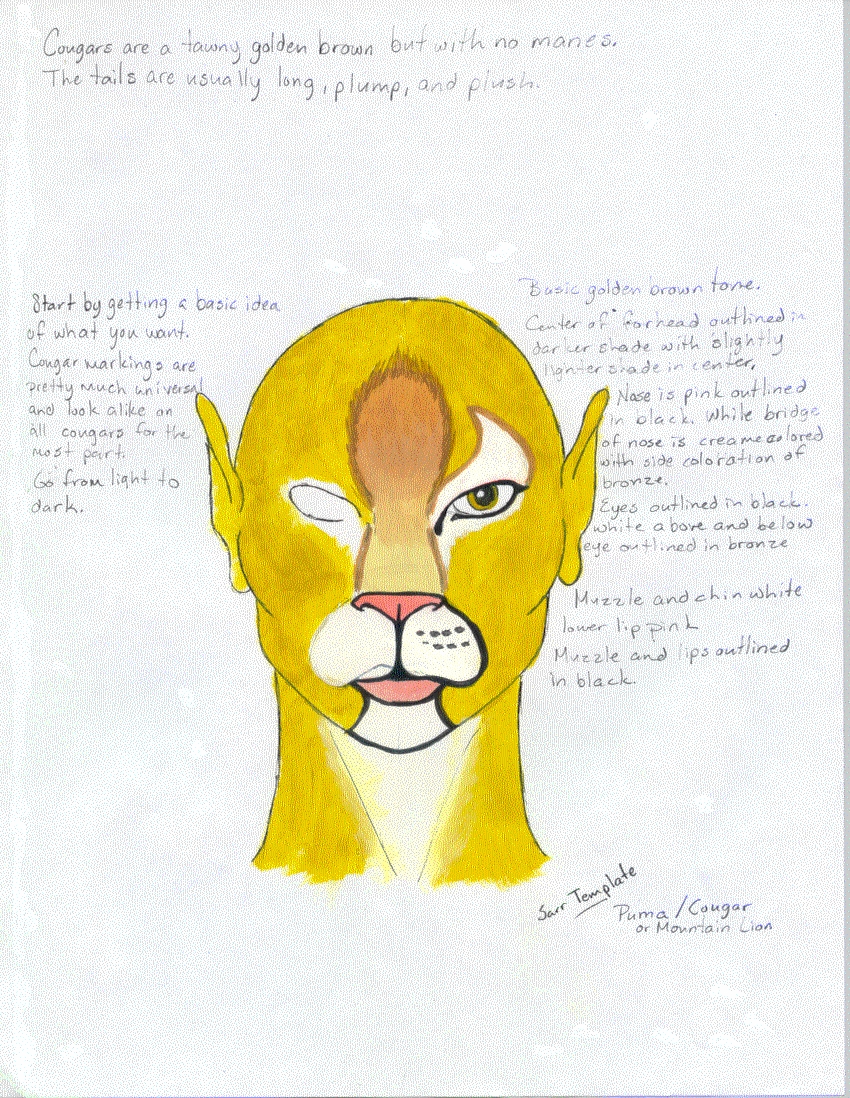 Cougars are a tawny golden brown but with no manes.
The tails are usually long, plump, and plush.
Start by getting a basic idea
of what you want.
Cougar markings are
pretty much universal
and look alike on
all cougars for the
most part.
Go from light to
dark.
Basic golden brown tone.
Center of forhead outlined in
darker shade with slightly
lighter shade in center.
Nose is pink outlined
in black. While bridge
of nose is creame colored
with side coloration of
bronze.
Eyes outlined in black.
white above and below
eye outlined in bronze
Muzzle and chin white
lower lip pink
Muzzle and lips outlined
in black.
Sarr Template
Puma / Cougar
or Mountain Lion